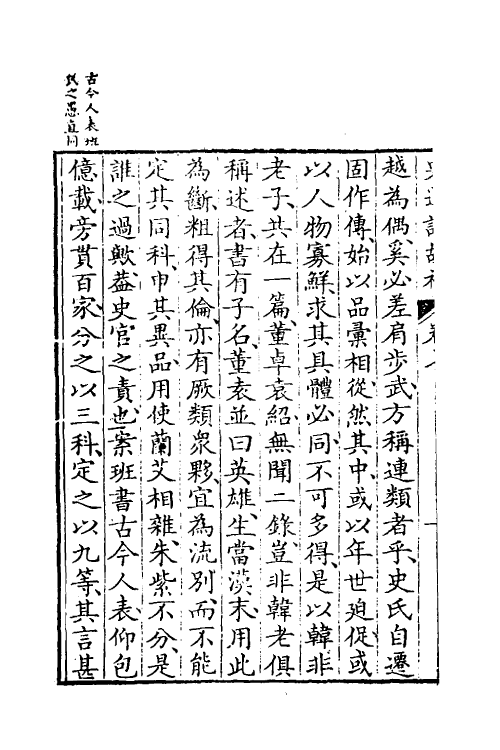 越為偶奚必差肩步武方稱連類者乎史氏自遷
固作傳始以品彙相從然其中或以年世迫促或
以人物寡鮮求其具體必同不可多得是以韓非
老子共在一篇董卓袁紹無聞二錄豈非韓老俱
稱述者書有子名董袁並曰英雄生當漢末用此
為斷粗得其倫亦有厥類衆夥宜為流別而不能
定其同科申其異品用使蘭艾相雜朱紫不分是
誰之過歟蓋史官之責也案班書古今人表仰包
億載旁貫百家分之以三科定之以九等其言甚
古今人表班